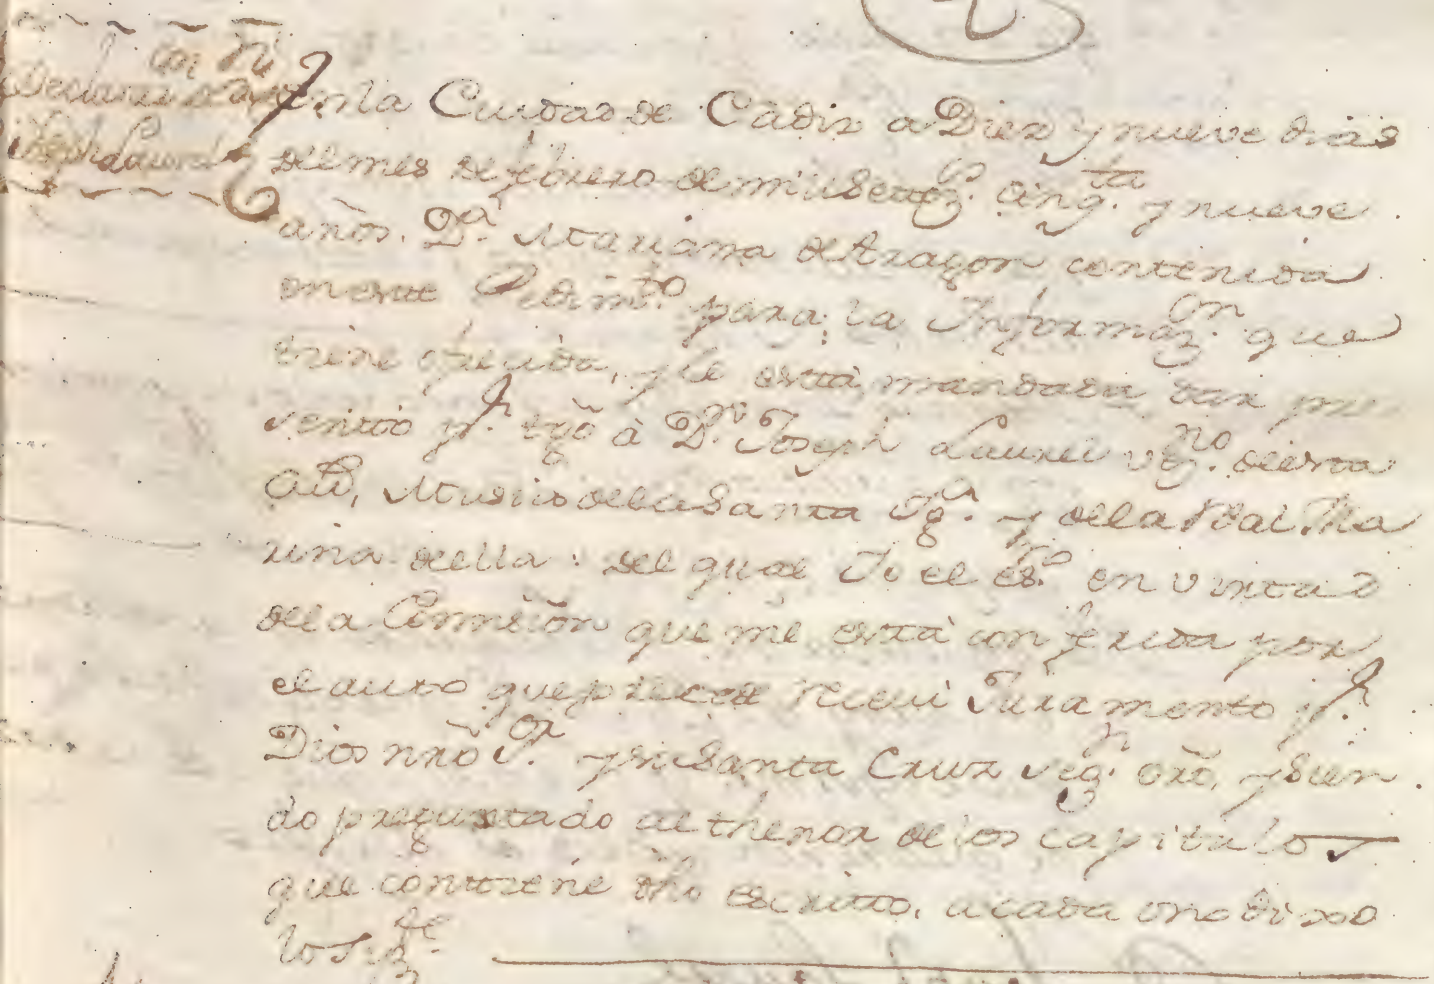 Declarac.on de Dn
Joseph Laurel
En la Ciudad de Cadiz a Diez y nueve dias
del mes de febrero de mill Setez.s cinq.ta y nueve
años. D.a Mariana de Aragon contenida
en este Pedim.to para la Informaz.on que
tiene ofrecida, y le está mandada dar pre
sentó p.r tgõ à D.n Joseph Laurel vez.no de esta
Ciu.d, Musico de la Santa Yg.a y de la Rl Ma
rina de ella: del qual Yo el ess.no en virtud
de la Comision que me está conferida por
el auto que precede recivi Juramento p.r
Dios nrõ S.or y su Santa Cruz seg.n drõ, y sien
do preguntado al thenor de los capitulos
que contiene dhõ escritto, a cada uno dixo
lo sig.te